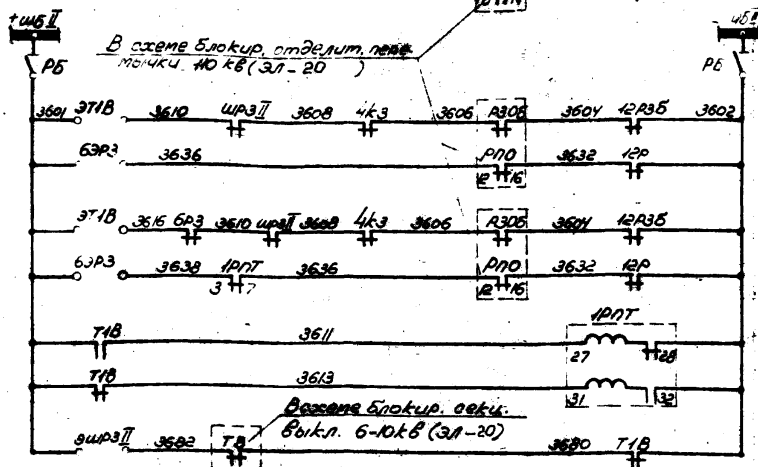 +ШБII
РБ
В схеме блокир. отделит. пере
мычки 110 кВ (ЭЛ-20
РБ
3601 ЭТ1В 3610 ШРЗII 3608 4КЗ 3606 РЗОБ 3604 12РЗБ 3602
БЭРЗ 3636 РПО 3632 12Р
12 16
ЭТ1В 3616 6РЗ 3610 ШРЗII 3608 4КЗ 3606 РЗОБ 3604 12РЗБ
БЭРЗ 3638 1РПТ 3636 РПО 3632 12Р
3 7 12 16
1РПТ
Т1В 3611
27 28
Т1В 3613
31 32
В схеме блокир. секц.
выкл. 6-10кВ (ЭЛ-20)
ЭШРЗII 3682 ТВ 3680 Т1В